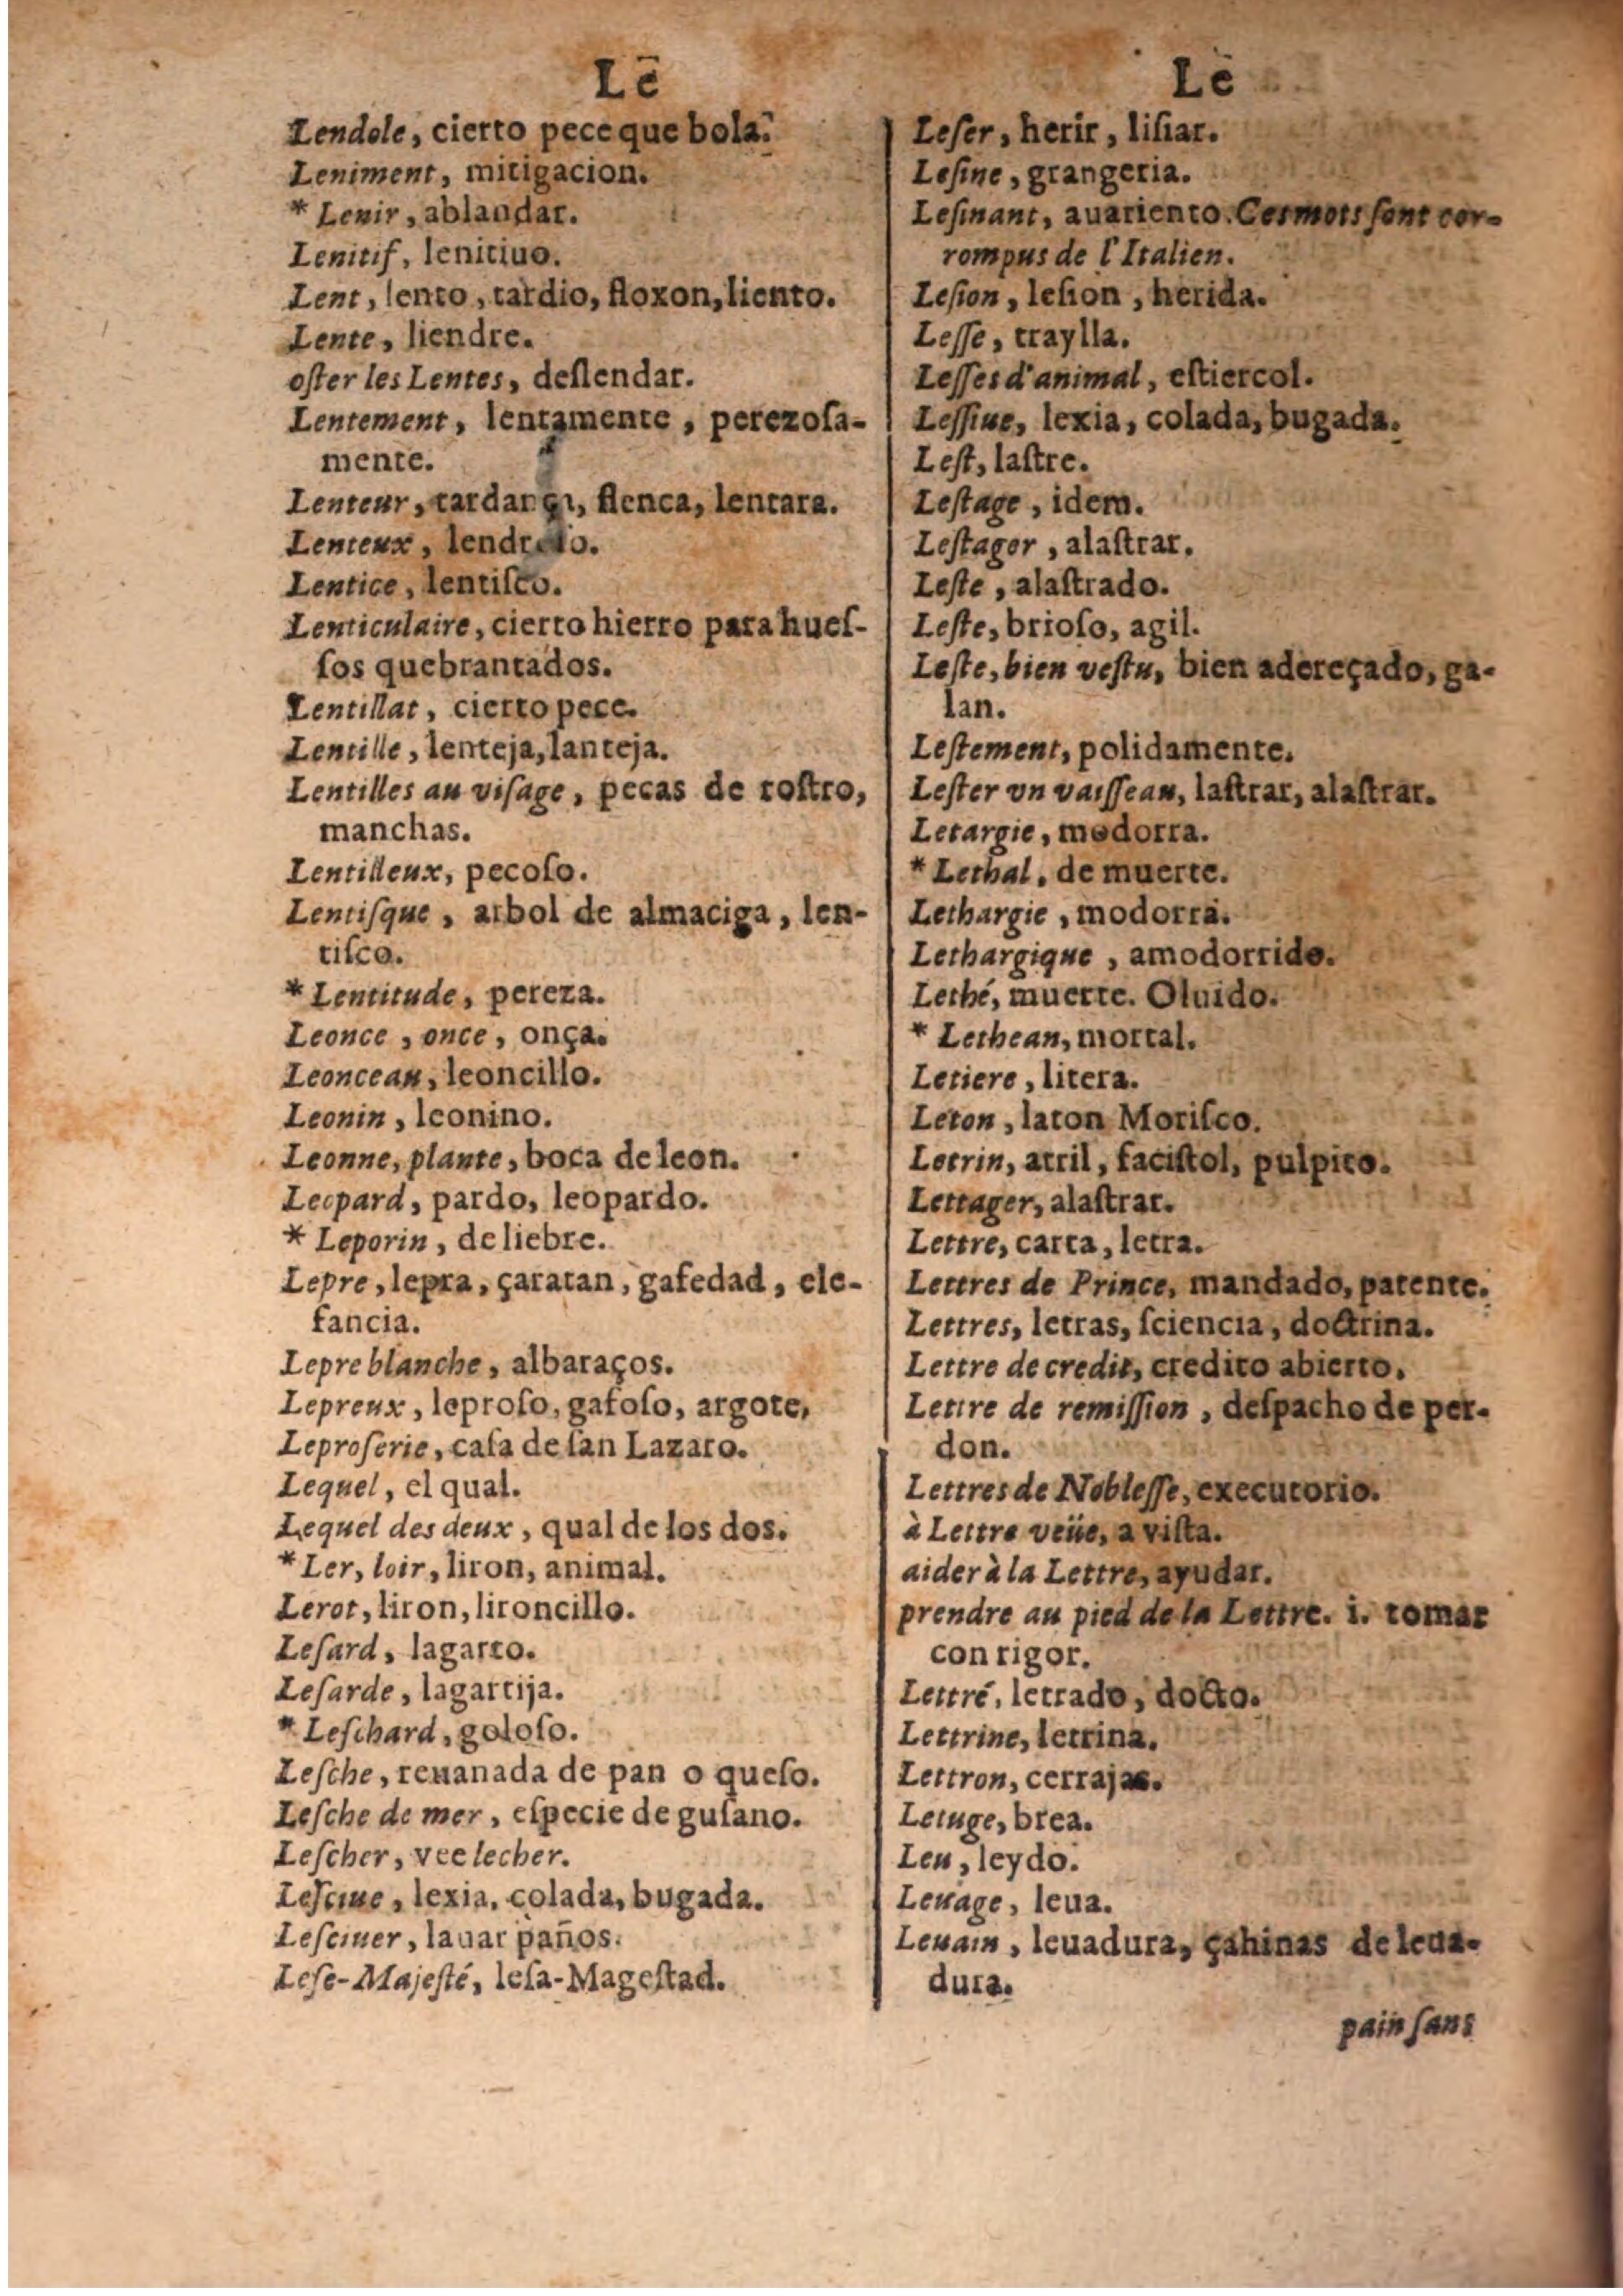 Lē
Lendole, cierto pece que bola.
Leniment, mitigacion.
* Lenir, ablandar.
Lenitif, lenitiuo.
Lent, lento, tardio, floxon, liento.
Lente, liendre.
oſter les Lentes, deſlendar.
Lentement, lentamente, perezoſa-
mente.
Lenteur, tardança, flenca, lentara.
Lenteux, 
Lentice, lentiſco.
Lenticulaire, cierto hierro para hueſ-
ſos quebrantados.
Lentillat, cierto pece.
Lentille, lenteja, lanteja.
Lentilles au viſage, pecas de roſtro,
manchas.
Lentilleux, pecoſo.
Lentiſque, arbol de almaciga, len-
tiſco.
* Lentitude, pereza.
Leonce, once, onça.
Leonceau, leoncillo.
Leonin, leonino.
Leonne, plante, boca de leon.
Leopard, pardo, leopardo.
* Leporin, de liebre.
Lepre, lepra, çaratan, gafedad, ele-
fancia.
Lepre blanche, albaraços.
Lepreux, leproſo, gafoſo, argote,
Leproſerie, caſa de ſan Lazaro.
Lequel, el qual.
Lequel des deux, qual de los dos.
* Ler, loir, liron, animal.
Lerot, liron, lironcillo.
Leſard, lagarto.
Leſarde, lagartija.
* Leſchard, goloſo.
Leſche, reuanada de pan o queſo.
Leſche de mer, eſpecie de guſano.
Leſcher, vee lecher.
Leſciue, lexia, colada, bugada.
Leſciuer, lauar paños.
Leſe-Majeſté, leſa-Mageſtad.
Lē
Leſer, herir, liſiar.
Leſine, grangeria.
Leſinant, auariento. Ces mots ſont cor-
rompus de l'Italien.
Leſion, leſion, herida.
Leſſe, traylla.
Leſſes d'animal, eſtiercol.
Leſſiue, lexia, colada, bugada.
Leſt, laſtre.
Leſtage, idem.
Leſtager, alaſtrar.
Leſte, alaſtrado.
Leſte, brioſo, agil.
Leſte, bien veſtu, bien adereçado, ga-
lan.
Leſtement, polidamente.
Leſter vn vaiſſeau, laſtrar, alaſtrar.
Letargie, modorra.
* Lethal, de muerte.
Lethargie, modorra.
Lethargique, amodorrido.
Lethé, muerte. Oluido.
* Lethean, mortal.
Letiere, litera.
Leton, laton Moriſco.
Letrin, atril, faciſtol, pulpito.
Lettager, alaſtrar.
Lettre, carta, letra.
Lettres de Prince, mandado, patente.
Lettres, letras, ſciencia, doctrina.
Lettre de credit, credito abierto.
Lettre de remiſſion, deſpacho de per-
don.
Lettres de Nobleſſe, executorio.
à Lettre veüe, a viſta.
aider à la Lettre, ayudar.
prendre au pied de la Lettre. i. tomar
con rigor.
Lettré, letrado, docto.
Lettrine, letrina.
Lettron, cerrajas.
Letuge, brea.
Leu, leydo.
Leuage, leua.
Leuain, leuadura, çahinas de leua-
dura.
pain ſans